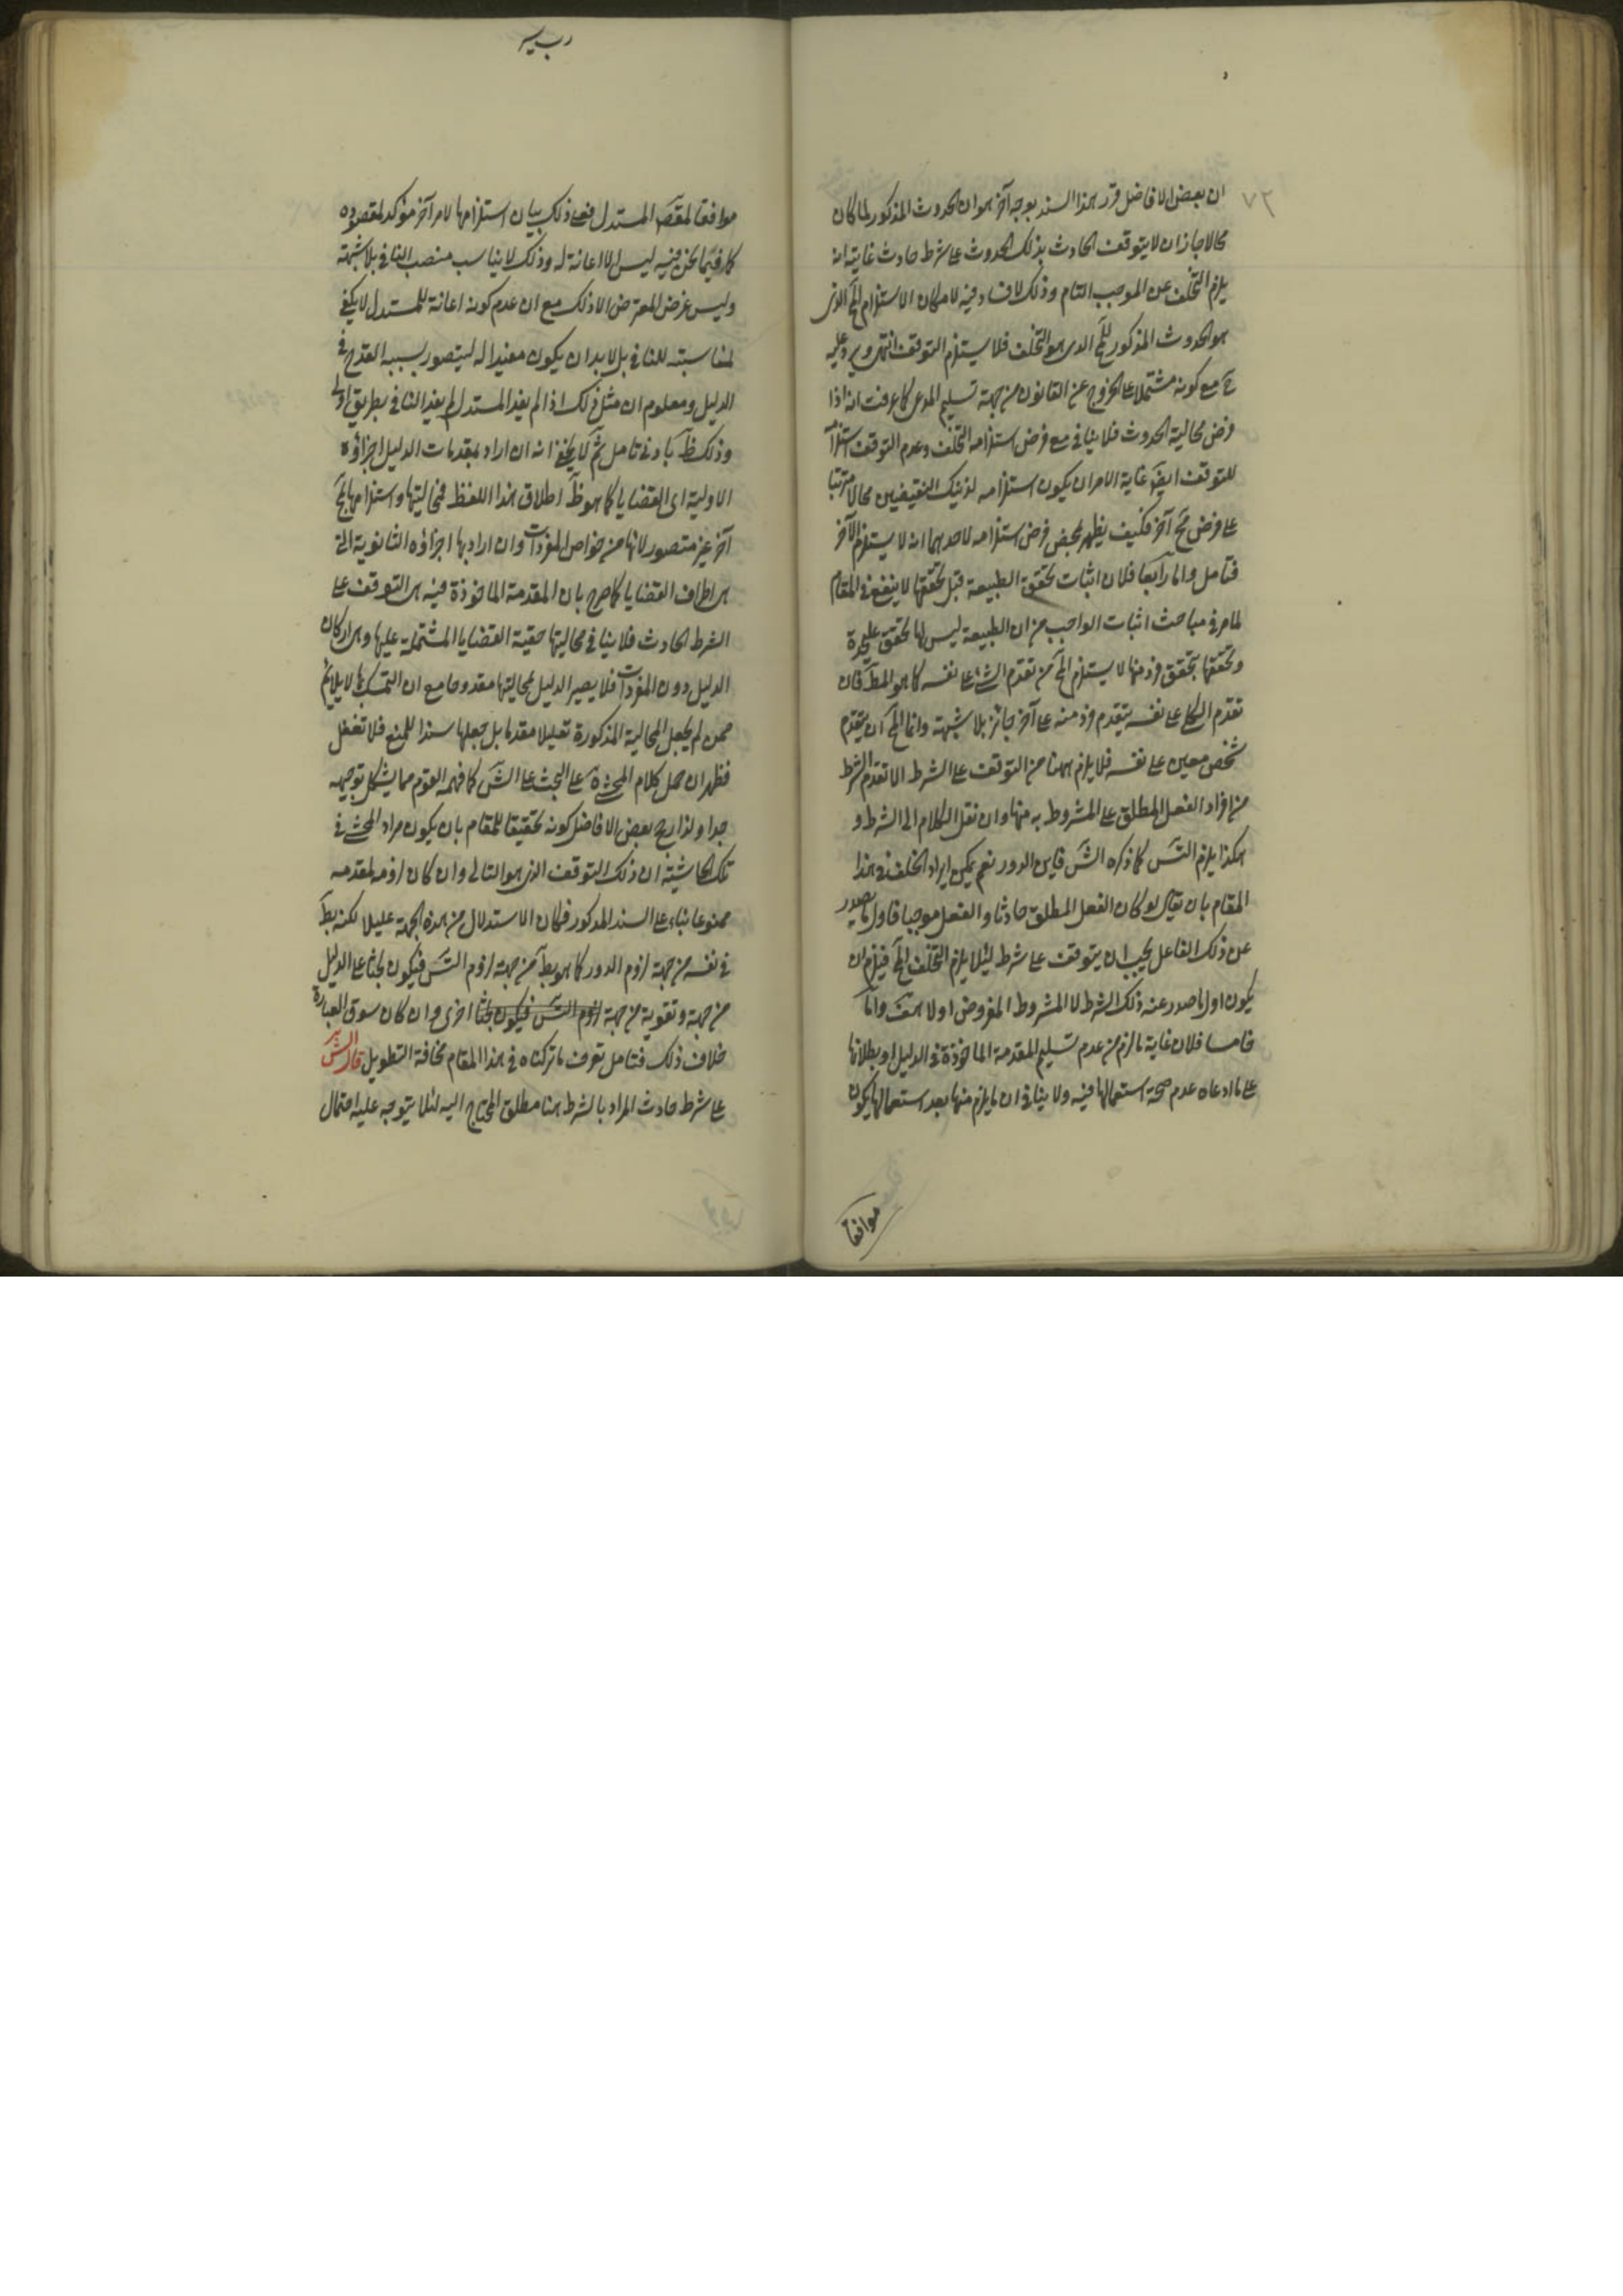 ٧٢
ان بعض الافاضل قرر هذا السند بوجه آخر هو ان الحدوث المذكور لما كان
محالا جاز ان لا يتوقف الحادث بذلك الحدوث على شرط حادث غايته انه
يلزم التخلف عن الموجب التام وذلك لا فساد فيه لامكان الاستلزام المح الذى
هو الحدوث المذكور للمح الذى هو التخلف فلا يستلزم التوقف انتهى ويرد عليه
ح مع كونه مشتملا على الخروج عن القانون من جهة تسليم المدعى كما عرفت انه اذا
فرض محالية الحدوث فلا ينافى مع فرض استلزامه التخلف وعدم التوقف استلزامه
للتوقف ايضا غاية الامر ان يكون استلزامه لذينك النقيضين محالا مترتبا
على فرض مح آخر فكيف يظهر بمحض فرض استلزامه لاحدهما انه لا يستلزم الآخر
فتامل واما رابعا فلان اثبات تحقق الطبيعة قبل تحققها لا ينفع فى المقام
لما مر فى مباحث اثبات الواجب من ان الطبيعة ليس لها تحقق على حدة
وتحققها بتحقق فرد منها لا يستلزم المح من تقدم الشئ على نفسه كما هو المط فان
تقدم الكلى على نفسه بتقدم فرد منه على آخر جائز بلا شبهة وانما المح ان يتقدم
شخص معين على نفسه فلا يلزم ههنا من التوقف على الشرط الا تقدم الشرط
من افراد الفعل المطلق على المشروط به منها وان نقل الكلام الى الشرط و
هكذا يلزم التس كما ذكره الش فاين الدور نعم يمكن ايراد الخلف فى هذا
المقام بان يقال لو كان الفعل المطلق حادثا والفعل موجبا فاول ما يصدر
عن ذلك الفاعل يجب ان يتوقف على شرط لئلا يلزم التخلف المح فيلزم ان
يكون اول ما صدر عنه ذلك الشرط لا المشروط المفروض اولا هف واما
خامسا فلان غاية ما لزم من عدم تسليم المقدمة الماخوذة فى الدليل او بطلانها
على ما ادعاه عدم صحة استعمالها فيه ولا ينافى ان ما يلزم منها بعد استعمالها يكون
موافقا
موافقا لمقص المستدل فعلى ذلك بيان استلزامها لامر آخر مؤكد لمقصوده
كما فيما نحن فيه ليس الا اعانة له وذلك لا يناسب منصب النافى بلا شبهة
وليس غرض المعترض الا ذلك مع ان عدم كونه اعانة للمستدل لا يكفى
لمناسبته للنافى بل لا بد ان يكون مفيدا له ليتصور بسببه القدح فى
الدليل ومعلوم ان مثل ذلك اذا لم يفد المستدل لم يفد النافى بطريق اولى
وذلك ظ بادنى تامل ثم لا يخفى انه ان اراد بمقدمات الدليل اجزاؤه
الاولية اى القضايا كما هو ظ اطلاق هذا اللفظ فمحاليتها واستلزامها لمح
آخر غير متصور لانها من خواص المفردات وان اراد بها اجزاؤه الثانوية التى
هى اطراف القضايا كما صرح بان المقدمة الماخوذة فيه هى التوقف على
الشرط الحادث فلا ينافى محاليتها حقية القضايا المشتملة عليها وهى اركان
الدليل دون المفردات فلا يصير الدليل بمحاليتها مقدوحا مع ان التمسك بها لا يلائم
ممن لم يجعل المحالية المذكورة تعليلا مقدما بل جعلها سندا للمنع فلا تغفل
فظهر ان حمل كلام المحشى ره على البحث على الش كما فهمه القوم مما يشكل توجيهه
جدا ولذا رجح بعض الافاضل كونه تحقيقا للمقام بان يكون مراد المحشى فى
تلك الحاشية ان ذلك التوقف الذى هو التالى وان كان لزومه لمقدمه
ممنوعا بناء على السند المذكور فكان الاستدلال من هذه الجهة عليلا لكنه بط
فى نفسه من جهة لزوم الدور كما هو بط من جهة لزوم التس فيكون بحثا على الدليل
من جهة وتقوية من جهة لزوم التس فيكون بحثا اخرى وان كان سوق العبارة
خلاف ذلك فتامل تعرف ما تركناه فى هذا المقام مخافة التطويل قال الش
على شرط حادث المراد بالشرط هنا مطلق المحتاج اليه لئلا يتوجه عليه احتمال